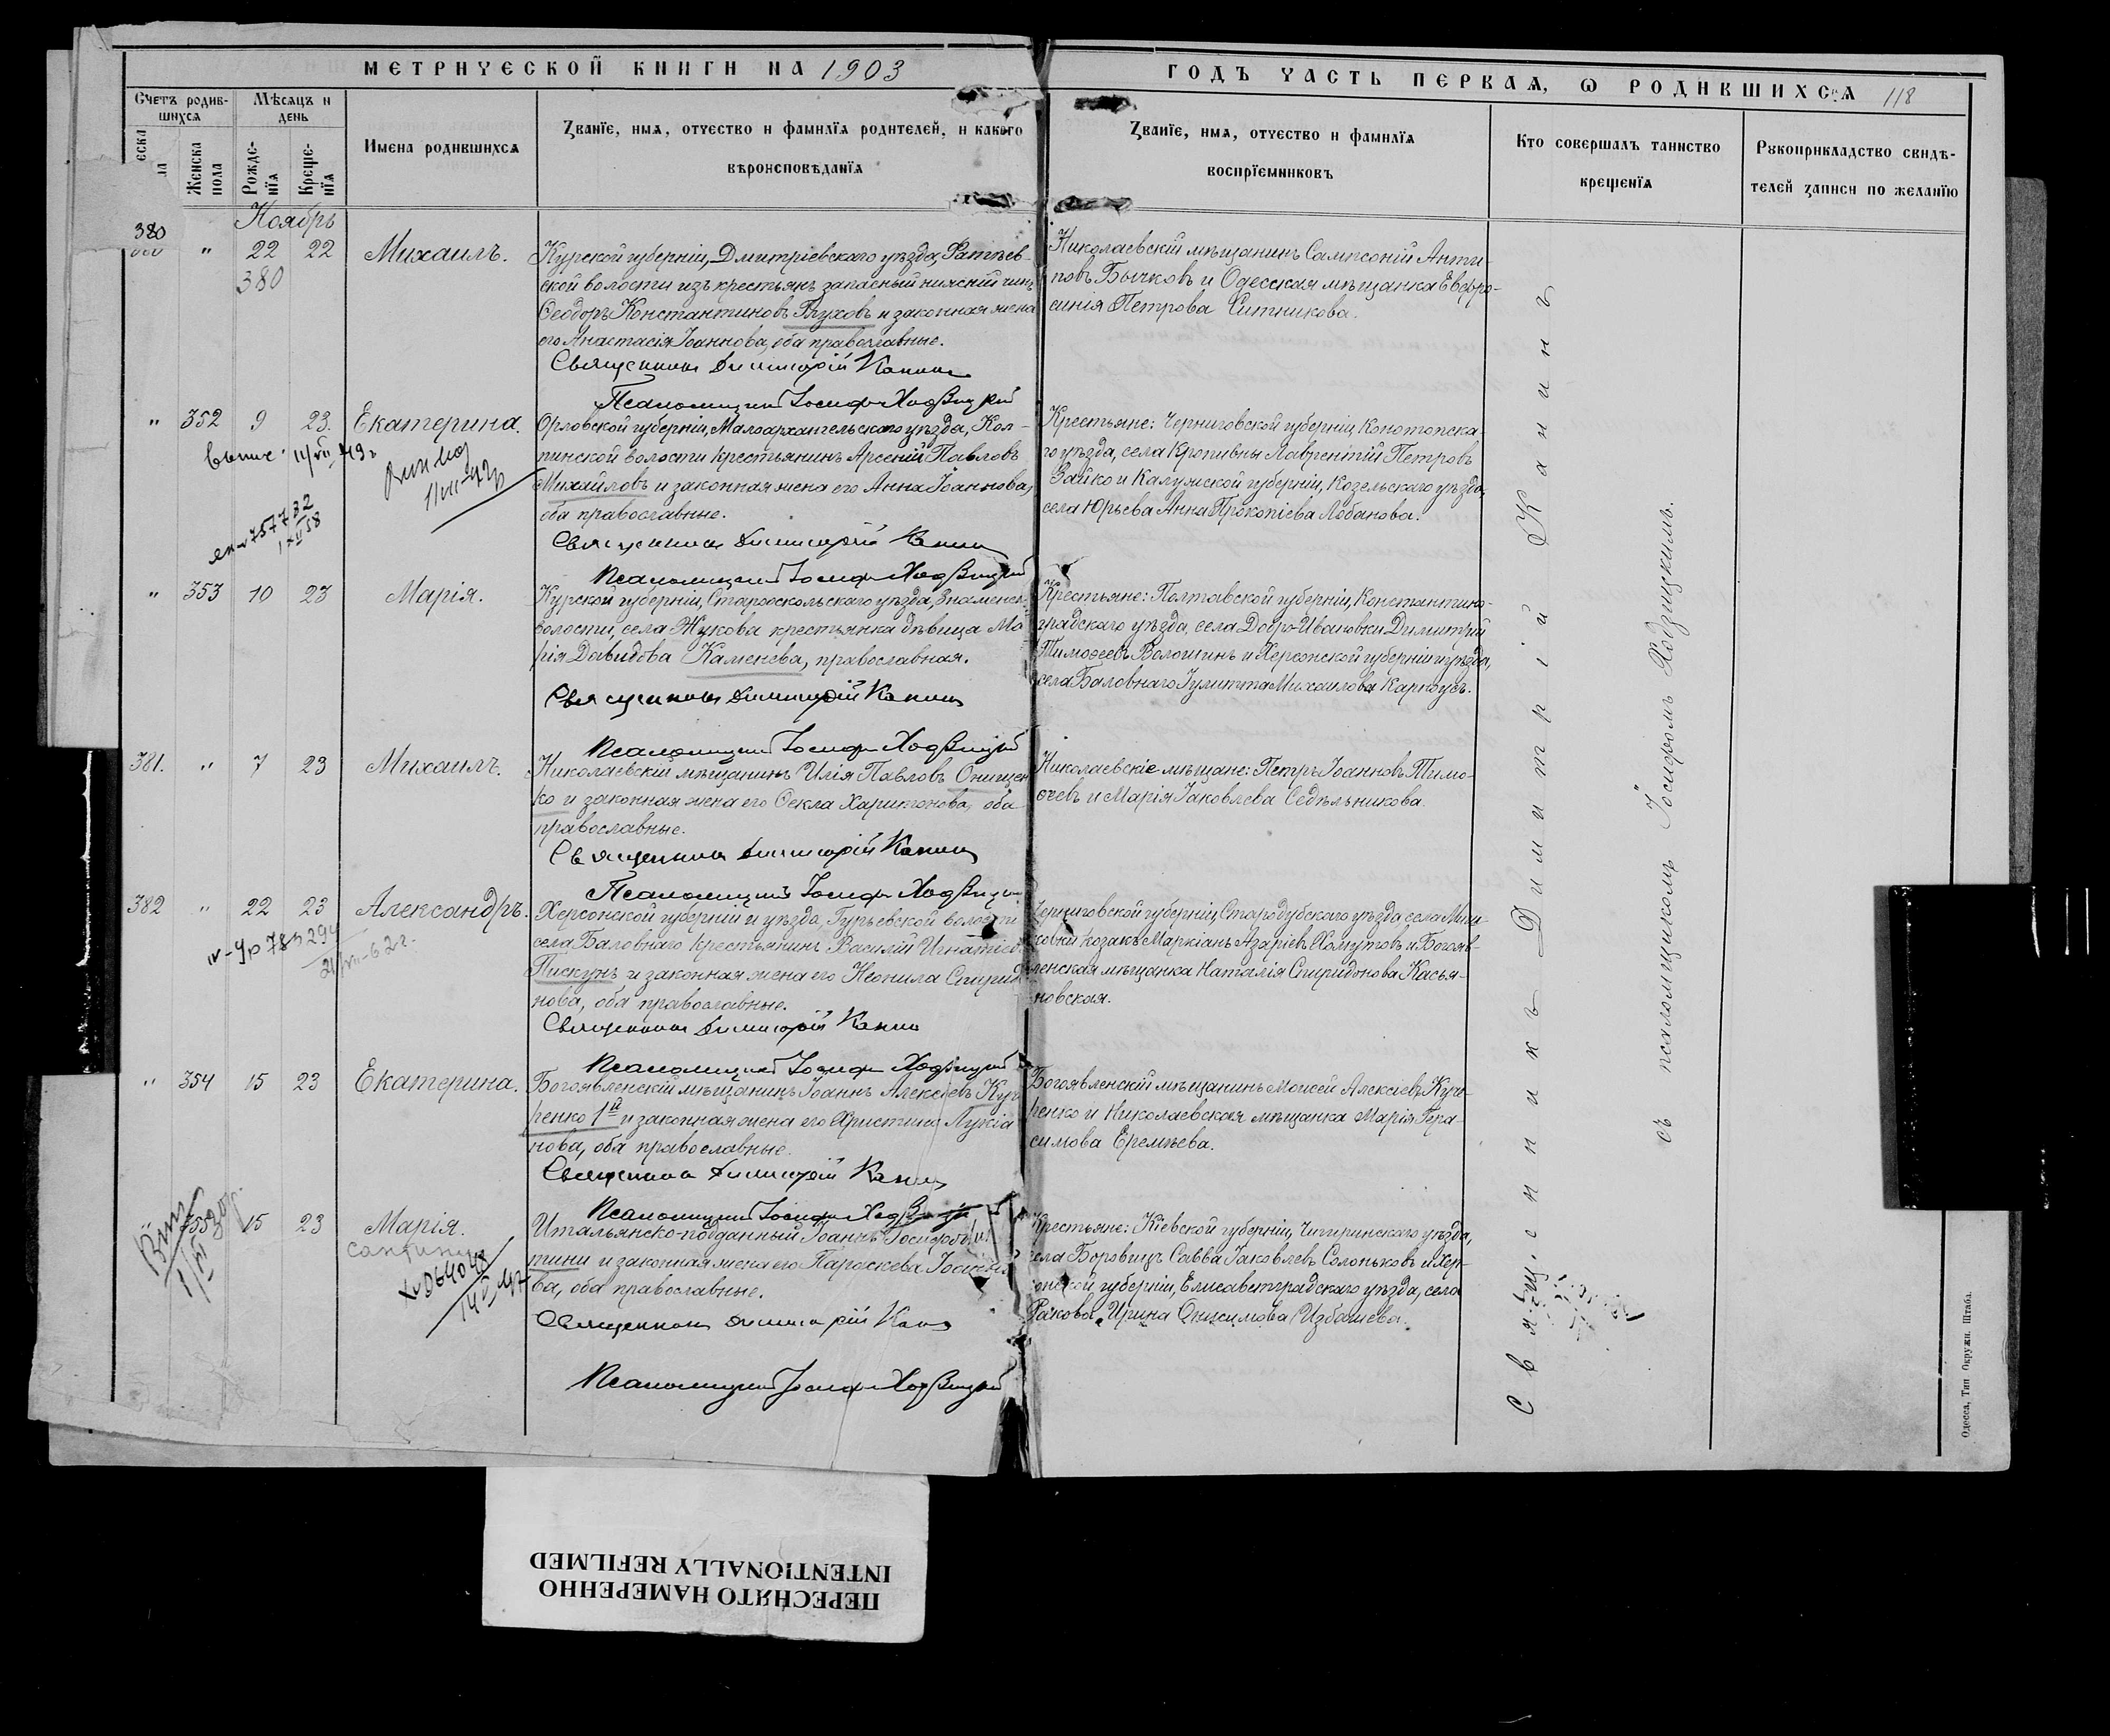 МЕТРИЧЕСКОЙ КНИГИ НА 1903
ГОДЪ ЧАСТЬ ПЕРВАЯ, Ѡ РОДИВШИХСЯ 118
Счетъ родив-
шихся
Мѣсяцъ и
день
Женска
пола
Рожде-
нїя
Креще-
нїя
Имена родившихся
Званїе, имя, отчество и фамилїя родителей, и какого
вѣроисповѣданїя
Званїе, имя, отчество и фамилїя
воспрїемниковъ
Кто совершалъ таинство
крещенїя
Рукоприкладство свидѣ-
телей записи по желанїю
Ноябрь
380 " 22 22 Михаилъ.
380
Курской губерніи, Дмитріевскаго уѣзда,
ской волости изъ крестьянъ запасный нижній чинъ
Ѳеодоръ Константиновъ Глуховъ и законная жена
его Анастасія Іоаннова, оба православные.
Священникъ Димитрій Канинъ
Псаломщикъ Іосифъ Ходзицкій
Николаевскій мѣщанинъ Сампсоній Анти-
повъ Бычковъ и Одесская мѣщанка Евфро-
синія Петрова Ситникова.
" 352 9 23. Екатерина.
Орловской губерніи, Малоархангельскаго уѣзда, Кол-
пинской волости крестьянинъ Арсеній Павловъ
Михайловъ и законная жена его Анна Іоаннова,
оба православные.
Священникъ Димитрій Канинъ
Псаломщикъ Іосифъ Ходзицкій
Крестьяне: Черниговской губерніи, Конотопска-
го уѣзда, села Кропивны Лаврентій Петровъ
Зайко и Калужской губерніи, Козельскаго уѣзда,
села Юрьева Анна Прокопіева Лобанова.
" 353 10 23 Марія.
Курской губерніи, Старооскольскаго уѣзда, Знаменск.
волости, села Жукова крестьянка дѣвица Ма-
рія Давидова Каменева, православная.
Священникъ Димитрій Канинъ
Псаломщикъ Іосифъ Ходзицкій
Крестьяне: Полтавской губерніи, Константино-
градскаго уѣзда, села Добро-Ивановки Димитрій
Тимоѳеевъ Волошинъ и Херсонской губерніи и уѣзда,
села Баловнаго Іулитта Михаилова Карноусъ.
381. " 7 23 Михаилъ.
Николаевскій мѣщанинъ Илія Павловъ Онищен-
ко и законная жена его Ѳекла Харитонова, оба
православные.
Священникъ Димитрій Канинъ
Псаломщикъ Іосифъ Ходзицкій
Николаевскіе мѣщане: Петръ Іоанновъ Тимо-
ѳеевъ и Марія Іаковлева Седѣльникова.
382 " 22 23 Александръ.
Херсонской губерніи и уѣзда, Гурьевской волости
села Баловнаго крестьянинъ Василій Игнатіевъ
Пискунъ и законная жена его Неонила Спиридо-
нова, оба православные.
Священникъ Димитрій Канинъ
Псаломщикъ Іосифъ Ходзицкій
Черниговской губерніи, Стародубскаго уѣзда, села Миш-
ковки козакъ Маркіанъ Азаріевъ Хомутовъ и Богояв-
ленская мѣщанка Наталія Спиридонова Касья-
новская.
" 354 15 23 Екатерина.
Богоявленскій мѣщанинъ Іоаннъ Алексіевъ Куч-
ренко 1й и законная жена его Христина Лукіа-
нова, оба православные.
Священникъ Димитрій Канинъ
Псаломщикъ Іосифъ Ходзицкій
Богоявленскій мѣщанинъ Моисей Алексіевъ Куч-
ренко и Николаевская мѣщанка Марія Гера-
симова Еремѣева.
" 355 15 23 Марія.
Итальянско-подданный Іоаннъ Іосифовъ
тини и законная жена его Параскева Іоанно-
ва, оба православные.
Священникъ Димитрій Канинъ
Псаломщикъ Іосифъ Ходзицкій
Крестьяне: Кіевской губерніи, Чигиринскаго уѣзда,
села Боровицъ Савва Іаковлевъ Солоньковъ и Хер-
сонской губерніи, Елисаветградскаго уѣзда, села
Ракова Ирина Онисимова Избашева.
Священникъ Димитрій Канинъ
съ псаломщикомъ Іосифомъ Ходзицкимъ.
Одесса, Тип Окружн. Штаба.
ПЕРЕСНЯТО НАМЕРЕННО
INTENTIONALLY REFILMED